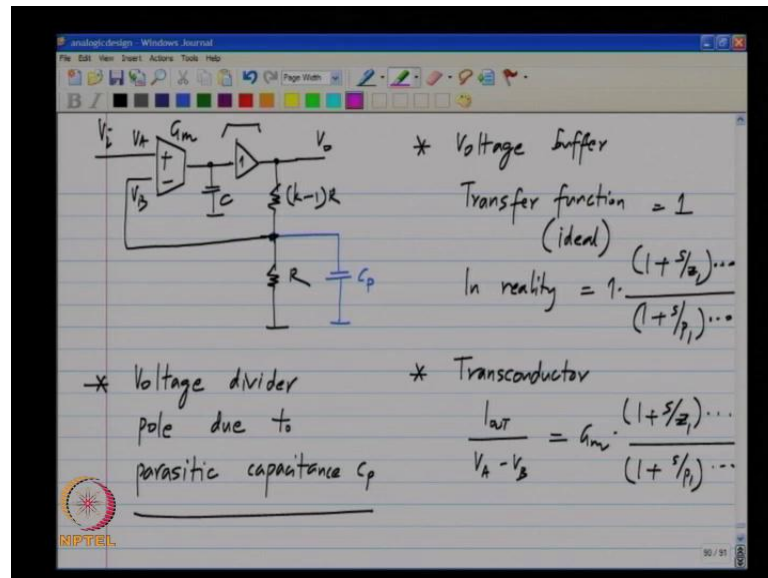 analogicdesign - Windows Journal
File Edit View Insert Actions Tools Help
Page Width
B I
Vi VA Gm
+
-
VB
1
Vo
C
(k-1)R
R
Cp
* Voltage divider
pole due to
parasitic capacitance Cp
* Voltage buffer
Transfer function = 1
(ideal)
In reality = 1. (1+s/z1)... / (1+s/p1)...
* Transconductor
IOUT / VA - VB = Gm. (1+s/z1)... / (1+s/p1)...
NPTEL
90 / 91